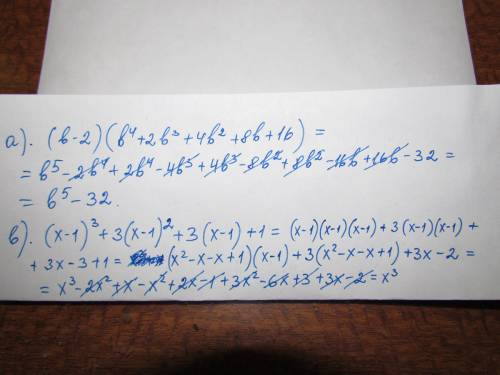 а). (b-2)(b⁴+2b³+4b²+8b+16) =
= b⁵-2b⁴+2b⁴-4b³+4b³-8b²+8b²-16b+16b-32 =
= b⁵-32.
в). (x-1)³+3(x-1)²+3(x-1)+1 = (x-1)(x-1)(x-1)+3(x-1)(x-1)+
+3x-3+1 = (x²-x-x+1)(x-1)+3(x²-x-x+1)+3x-2 =
= x³-2x²+x-x²+2x-1+3x²-6x+3+3x-2=x³